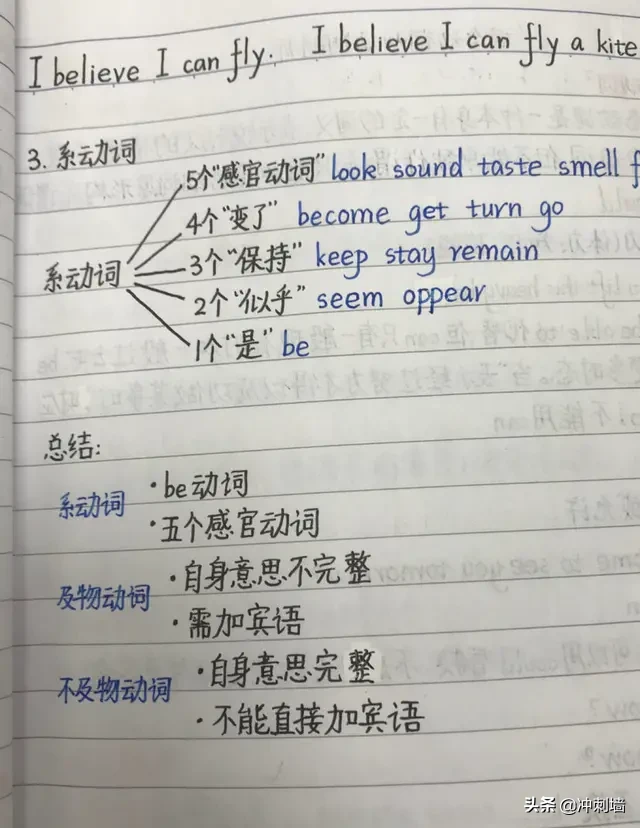 I believe I can fly. I believe I can fly a kite
3. 系动词
5个"感官动词" look sound taste smell f
4个"变了" become get turn go
系动词 3个"保持" keep stay remain
2个"似乎" seem oppear
1个"是" be
总结:
系动词 · be动词
· 五个感官动词
及物动词 · 自身意思不完整
· 需加宾语
不及物动词 · 自身意思完整
· 不能直接加宾语
头条 @冲刺墙